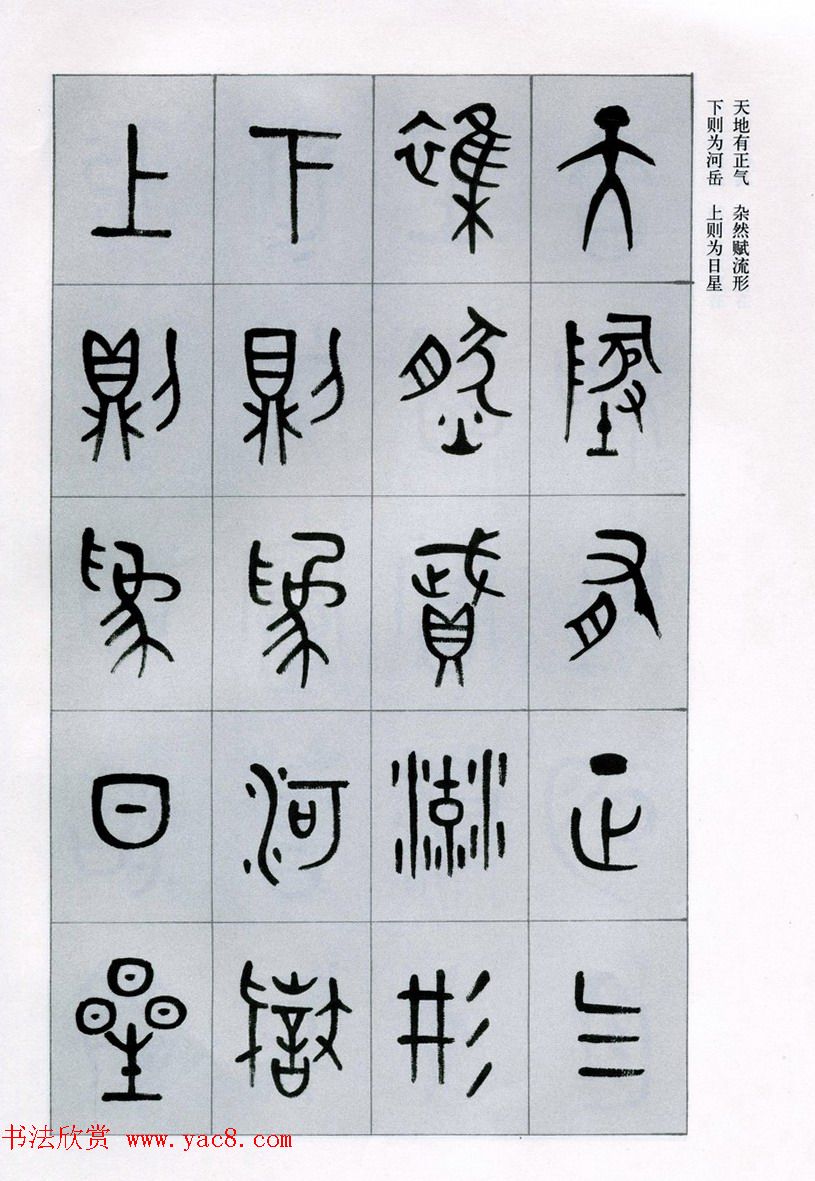 天地有正气 杂然赋流形
下则为河岳 上则为日星
天地有正气
雜然賦流形
下則為河嶽
上則為日星
书法欣赏 www.yac8.com